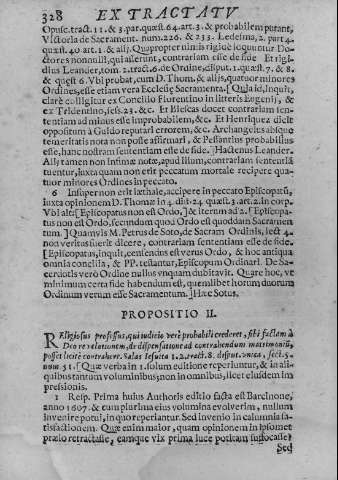 328 EX TRACTATV
Opusc. tract. 11. & 3. par. quæst. 64. art. 3. & probabilem putant,
Victoria de Sacrament. num. 226. & 233. Ledesma, 2. part. 4.
quæst. 40. art. 1. & alij. Quapropter nimis rigidè loquuntur Do-
ctores nonnulli, qui asserunt, contrariam esse de fide. Et rigi-
dius Leander, tom. 2. tract. 6. de Ordine, disput. 1. quæst. 7. & 8.
& quæst. 6. Vbi probat, cum D. Thom. & alijs, quatuor minores
Ordines, esse etiam vera Ecclesiæ Sacramenta. [Quia id, inquit,
clarè colligitur ex Concilio Florentino in litteris Eugenij, &
ex Tridentino, sess. 23. &c. Et Illescas docet contrariam sen-
tentiam ad minus esse improbabilem, &c. Et Henriquez dicit
oppositum à Guido reputari errorem, &c. Archangelus absque
temeritatis nota non posse affirmari, & Pessantius probabilius
esse, hanc nostram sententiam esse de fide.] Hactenus Leander.
Alij tamen non infimæ notæ, apud illum, contrariam sententiã
tuentur, iuxta quam non erit peccatum mortale recipere qua-
tuor minores Ordines in peccato.
6 Insuper non erit læthale, accipere in peccato Episcopatũ,
iuxta opinionem D. Thomæ in 4. dist. 24. quæst. 3. art. 2. in corp.
Vbi ait: [Episcopatus non est Ordo,] & iterum ad 2. [Episcopa-
tus non est Ordo, secundum quod Ordo est quoddam Sacramen-
tum.] Quamvis M. Petrus de Soto, de Sacram Ordinis, lect 4.
non veritus fuerit dicere, contrariam sententiam esse de fide.
[Episcopatus, inquit, censendus est verus Ordo, & hoc antiqua
omnia concilia, & PP. testantur, Episcopatum Ordinari. De Sa-
cerdotis verò Ordine nullus vnquam dubitavit. Quare hoc, ve
minimum certa fide habendum est, quemlibet horum duorum
Ordinum verum esse Sacramentum.] Hæc Sotus.
PROPOSITIO II.
Religiosus professus, qui iudicio verè probabili crederet, sibi factam à
Deo revelationem, de dispensatione ad contrahendum matrimoniũ,
posset licitè contrahere. Salas Iesuita 1. 2. tract. 8. disput. vnica, sect. 5.
num 51. [Quæ verba in 1. solum editione reperiuntur, & in ali-
quibus tantum voluminibus; non in omnibus, licet eiusdem im-
pressionis.
1 Resp. Prima huius Authoris editio facta est Barcinone,
anno 1607. & cum plurima eius volumina evolverim, nullum
invenire potui, in quo reperiantur. Sed invenio in calumnia sa-
tisfactionem. Quæ enim maior, quam opinionem in ipsomet
prælo retractasse, eamque vix prima luce positam suffocasse?
Sed